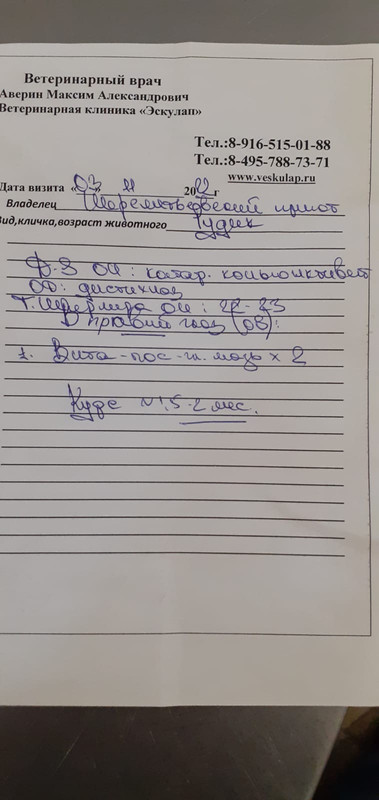 Ветеринарный врач
Аверин Максим Александрович
Ветеринарная клиника «Эскулап»
Тел.:8-916-515-01-88
Тел.:8-495-788-73-71
www.veskulap.ru
Дата визита «03» 11 2022г
Владелец Шереметьевский приют
Вид,кличка,возраст животного Гудик
Д-З OU: катар. коньюнктивит
OD: дистихиаз
Т. Ширмера OU: 22-23
В правый глаз (OD):
1. Вита-пос-гл. мазь x 2
Курс ~1,5-2 мес.